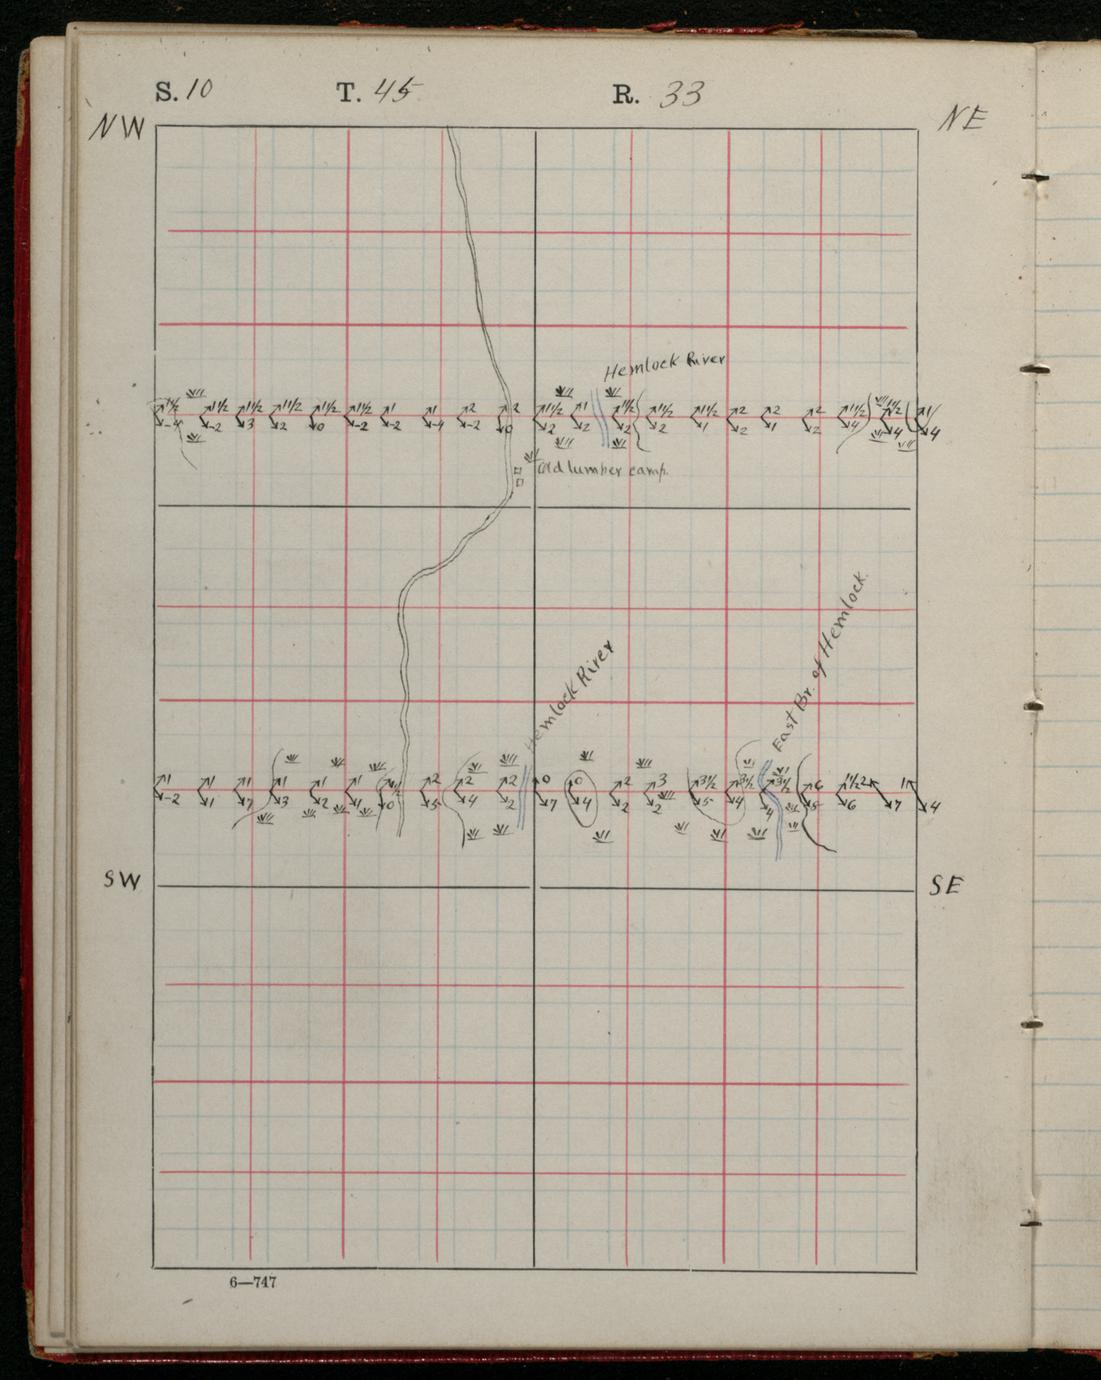 S. 10 T. 45 R. 33
NW NE
Hemlock River
1 1/2 1 1/2 1 1/2 1 1/2 1 1/2 1 1/2 1 1 2 2 1 1/2 1 1 1/2 1 1/2 1 1/2 2 2 2 1 1/2 1 1/2 1
-4 -2 3 2 0 -2 -2 -4 -2 0 2 2 2 2 1 2 1 2 4 4 4
Old lumber camp.
Hemlock River
East Br. of Hemlock
1 1 1 1 1 1 2 2 2 0 0 2 3 3 1/2 3 1/2 3 1/2 6 1 1/2 2 1
-2 1 7 3 2 1 0 5 4 2 7 4 2 2 5 4 4 5 6 7 4
SW SE
6—747